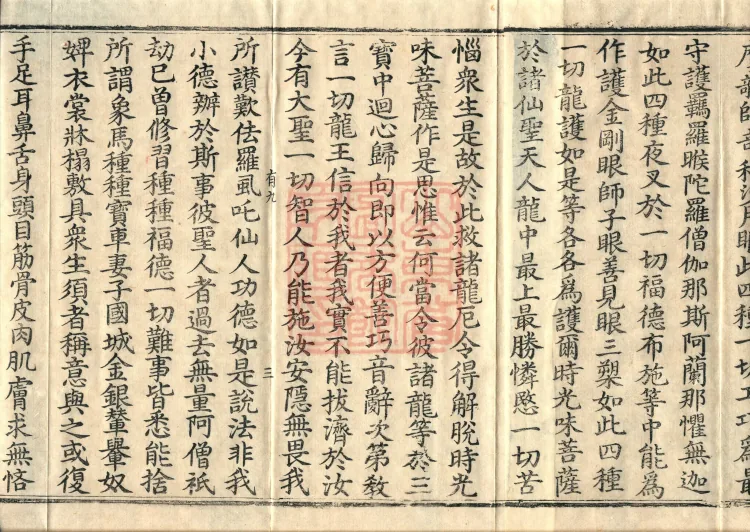 眼此四種一切工巧爲最
守護羈羅睺陀羅僧伽那斯阿蘭那懼無迦
如此四種夜叉於一切福德布施等中能爲
作護金剛眼師子眼善見眼三槊如此四種
一切龍護如是等各各爲護爾時光味菩薩
於諸仙聖天人龍中最上最勝憐愍一切苦
惱衆生是故於此救諸龍厄令得解脫時光
味菩薩作是思惟云何當令彼諸龍等於三
寶中迴心歸向即以方便善巧音辭次第教
言一切龍王信於我者我實不能拔濟於汝
今有大聖一切智人乃能施汝安隱無畏我
有九 三
所讃歎佉羅虱吒仙人功德如是說法非我
小德辦於斯事彼聖人者過去無量阿僧祇
劫已曾修習種種福德一切難事皆悉能捨
所謂象馬種種寶車妻子國城金銀輦轝奴
婢衣裳牀榻敷具衆生須者稱意與之或復
手足耳鼻舌身頭目筋骨皮肉肌膚求無悋